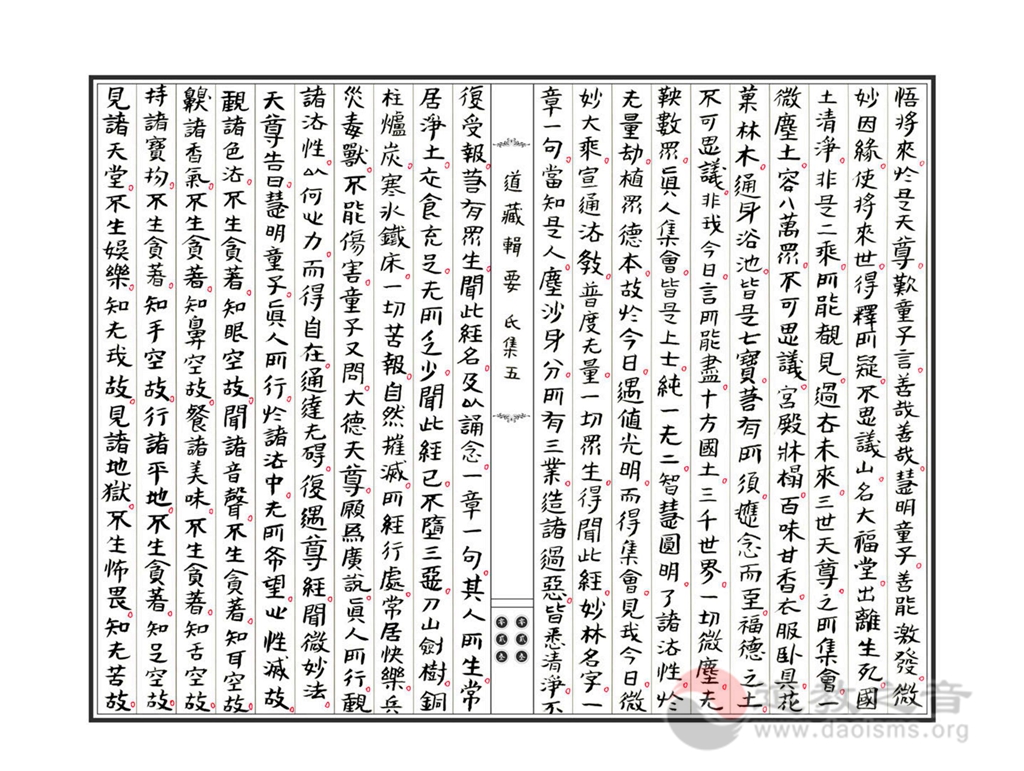 悟將來於是天尊歎童子言善哉善哉慧明童子善能激發微
妙因緣使將來世得釋所疑不思議山名大福堂出離生死國
土清淨非是二乘所能覩見過去未來三世天尊之所集會一
微塵土容八萬眾不可思議宮殿牀榻百味甘香衣服臥具花
菓林木通身浴池皆是七寶若有所須應念而至福德之土
不可思議非我今日言所能盡十方國土三千世界一切微塵无
鞅數眾眞人集會皆是上士純一无二智慧圓明了諸法性於
无量劫植眾德本故於今日遇值光明而得集會見我今日微
妙大乘宣通法敎普度无量一切眾生得聞此經妙林名字一
章一句當知是人塵沙身分所有三業造諸過惡皆悉清淨不
道藏輯要 氐集五
復受報若有眾生聞此經名及以誦念一章一句其人所生常
居淨土衣食充足无所乏少聞此經已不墮三惡刀山劍樹銅
柱爐炭寒氷鐵床一切苦報自然摧滅所經行處常居快樂兵
災毒獸不能傷害童子又問大德天尊願爲廣說眞人所行觀
諸法性以何心力而得自在通達无碍復遇尊經聞微妙法
天尊告曰慧明童子眞人所行於諸法中无所希望心性滅故
觀諸色法不生貪著知眼空故聞諸音聲不生貪著知耳空故
齅諸香氣不生貪著知鼻空故餐諸美味不生貪著知舌空故
持諸寶物不生貪著知手空故行諸平地不生貪著知足空故
見諸天堂不生娛樂知无我故見諸地獄不生怖畏知无苦故
道教之音
www.daoisms.org